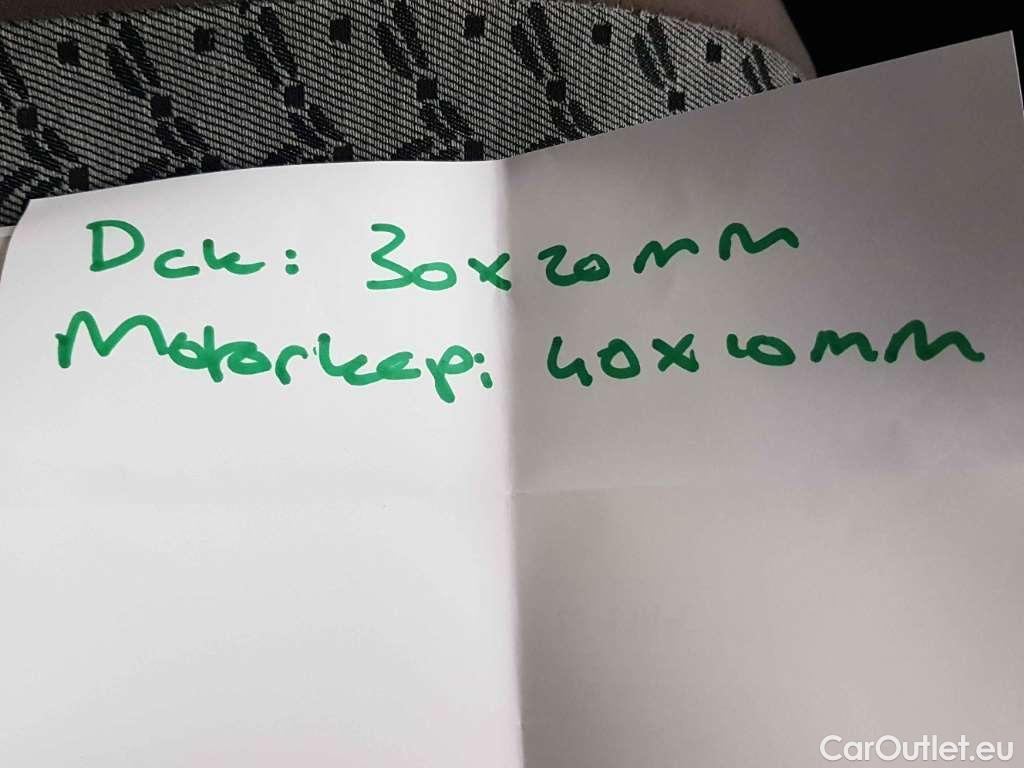 Dck: 30x20mm
Motorkap: 40x10mm
CarOutlet.eu